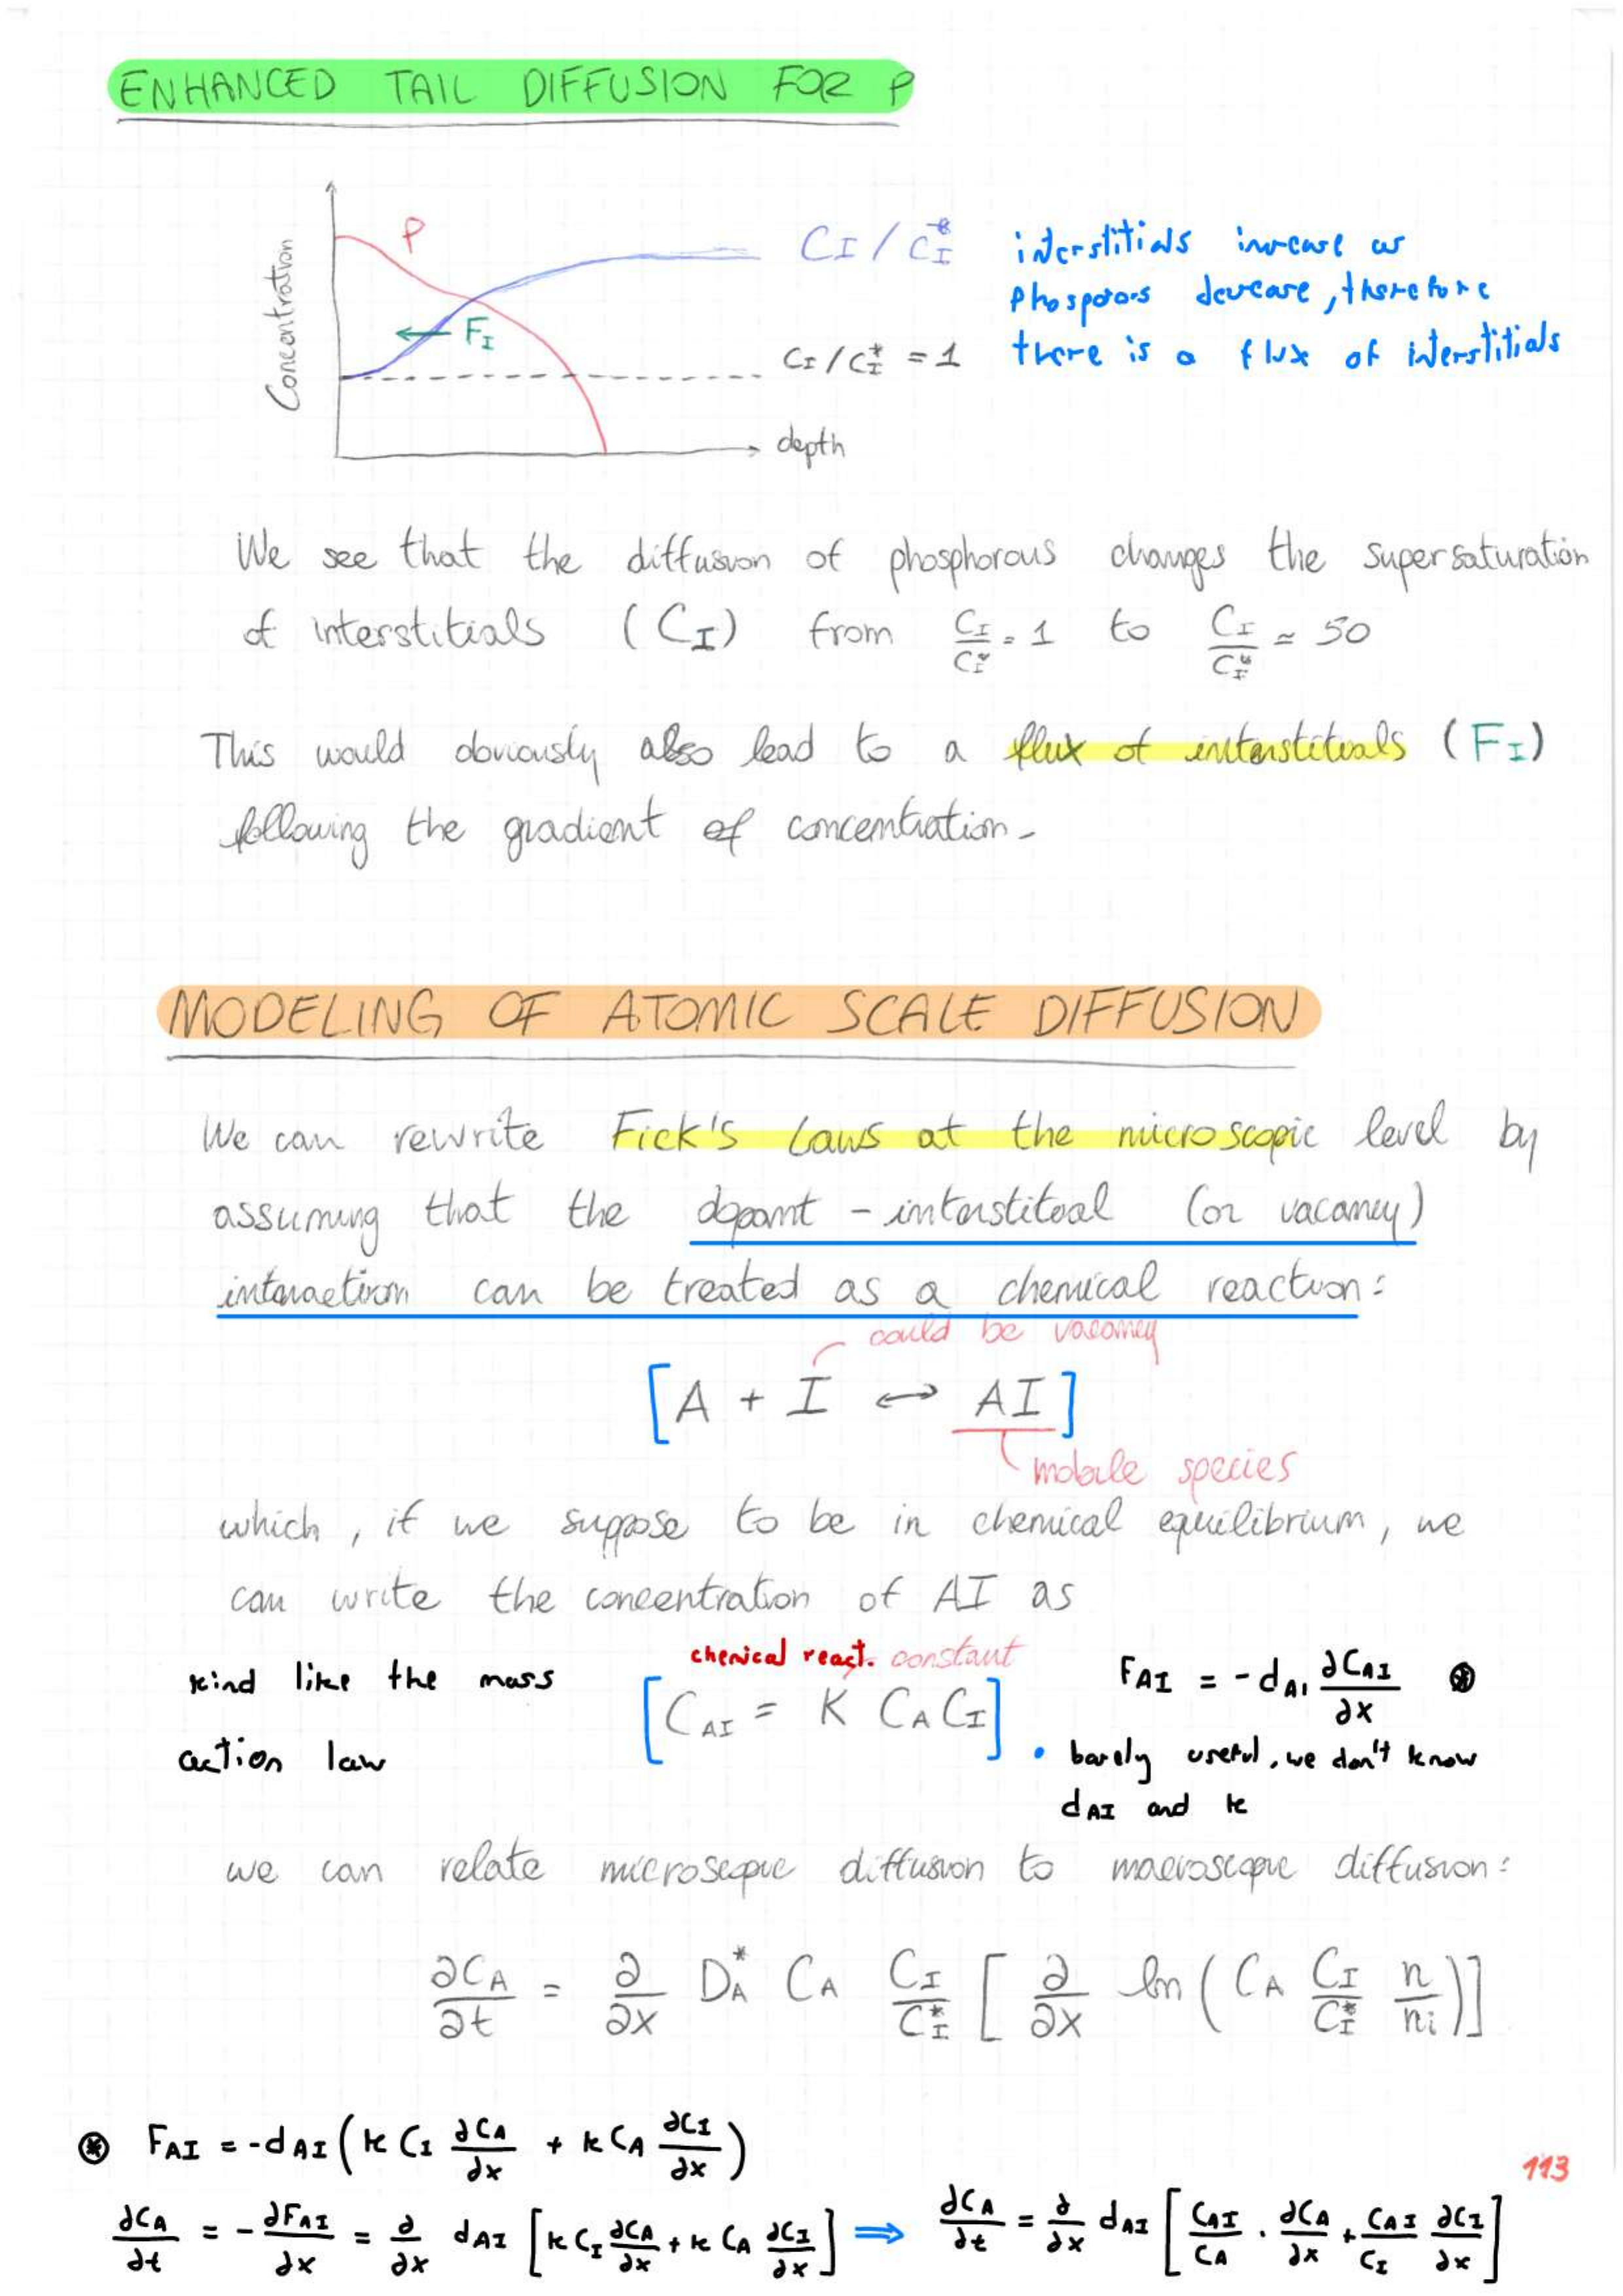 ENHANCED TAIL DIFFUSION FOR P
Concentration
P
F_I
C_I / C_I^*
C_I / C_I^* = 1
depth
interstitials increase as
phosporos decrease, therefore
there is a flux of interstitials
We see that the diffusion of phosphorous changes the supersaturation
of interstitials (C_I) from C_I/C_I^* = 1 to C_I/C_I^* ≃ 50
This would obviously also lead to a flux of interstitials (F_I)
following the gradient of concentration.
MODELING OF ATOMIC SCALE DIFFUSION
We can rewrite Fick's Laws at the microscopic level by
assuming that the dopant - interstitial (or vacancy)
interaction can be treated as a chemical reaction:
could be vacancy
[A + I ↔ AI]
mobile species
which, if we suppose to be in chemical equilibrium, we
can write the concentration of AI as
kind like the mass
action law
chemical react. constant
[C_AI = K C_A C_I]
F_AI = -d_AI ∂C_AI/∂x ⊛
• barely useful, we don't know
d_AI and k
we can relate microscopic diffusion to macroscopic diffusion:
∂C_A/∂t = ∂/∂x D_A^* C_A C_I/C_I^* [∂/∂x ln(C_A C_I/C_I^* n/n_i)]
⊛ F_AI = -d_AI (k C_I ∂C_A/∂x + k C_A ∂C_I/∂x)
∂C_A/∂t = -∂F_AI/∂x = ∂/∂x d_AI [k C_I ∂C_A/∂x + k C_A ∂C_I/∂x] ⇒ ∂C_A/∂t = ∂/∂x d_AI [C_AI/C_A · ∂C_A/∂x + C_AI/C_I ∂C_I/∂x]
113